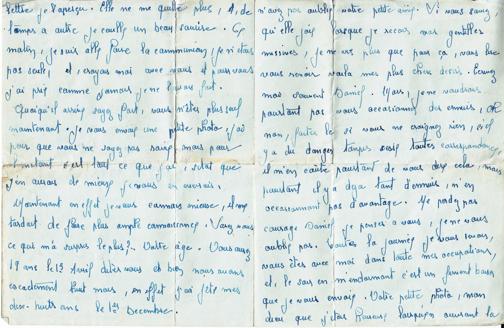 lettre je l'aperçu. Elle ne me quitte plus, & de
temps a autre je cueille un beau sourire. Ce
matin, je suis allé faire la communion, je n'étais
pas seul, et, croyais moi avec vous et pour vous
j'ai prié comme jamais je ne l'avais fait.
Quoiqu'il arrive soyez fort, vous n'êtes plus seul
maintenant. Je vous envoy une petite photo j'ai
peur que vous ne soyez pas saisie mais pour
l'instant c'est tout ce que j'ai, sitôt que
j'en aurais de mieux je vous en enverrai.
Maintenant en effet je vous connais mieux, il me
tardait de faire plus ample connaissance. Savez vous
ce qui m'a surpris le plus?. Votre âge. Vous aurez
19 ans le 13 Avril dites vous et bien nous avons
exactement huit mois, en effet j'ai fêté mes
dix-huits ans le 1er Décembre.
n'avez pas oublié votre petite amie. Si vous saviez
qu'elle joie lorsque je reçois vos gentilles
missives, je ne vis plus que pour ça, vous lire
vous revoir voila mes plus chers désirs. Ecrivez
moi souvent Daniel. Mais, je ne voudrais
pourtant pas vous occasionner des ennuis, oh
non, faites le si vous ne craignez rien, s'il
y a du danger
il m'en coûte pourtant de vous dire cela, mais
pourtant il y a déja tant d'ennuis, n'en
occasionnant pas d'avantage. Ne perdez pas
courage Daniel je pense a vous, je ne vous
oublie pas. Toutes la journée je vous revois,
vous êtes avec moi dans toute mes occupations,
et, le soir en m'endormant c'est un fervent baiser
que je vous envoie. Votre petite photo, mon
dieu que j'étais heureuse lorsqu'en ouvrant la